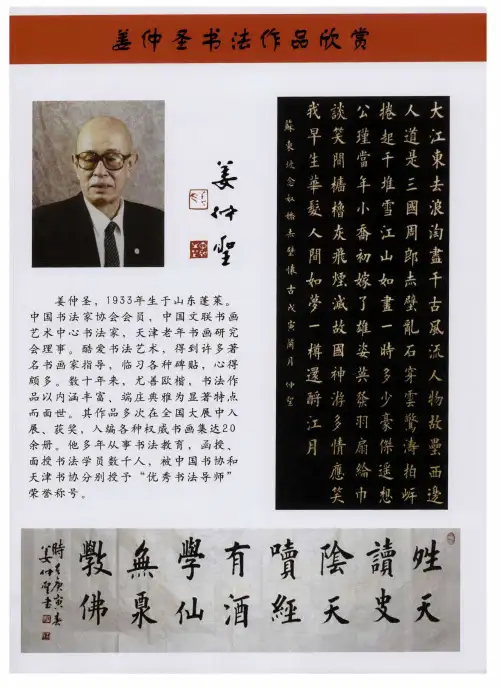 姜仲圣书法作品欣赏
姜仲聖
姜仲圣，1933年生于山东蓬莱。
中国书法家协会会员，中国文联书画
艺术中心书法家，天津老年书画研究
会理事。酷爱书法艺术，得到许多著
名书画家指导，临习各种碑贴，心得
颇多。数十年来，尤善欧楷，书法作
品以内涵丰富、端庄典雅为显著特点
而面世。其作品多次在全国大展中入
展、获奖，入编各种权威书画集达20
余册。他多年从事书法教育，函授、
面授书法学员数千人，被中国书协和
天津书协分别授予“优秀书法导师”
荣誉称号。
大江東去浪淘盡千古風流人物故壘西邊
人道是三國周郎赤壁亂石穿雲驚濤拍岸
捲起千堆雪江山如畫一時多少豪傑遥想
公瑾當年小喬初嫁了雄姿英發羽扇綸巾
談笑間檣櫓灰飛煙滅故國神游多情應笑
我早生華髮人間如夢一樽還酹江月
蘇東坡念奴嬌赤壁懷古戊寅蘭月 仲聖
姓天
讀史
陰天
嘖經
有酒
學仙
無泉
斆佛
時在庚寅春
姜仲聖書